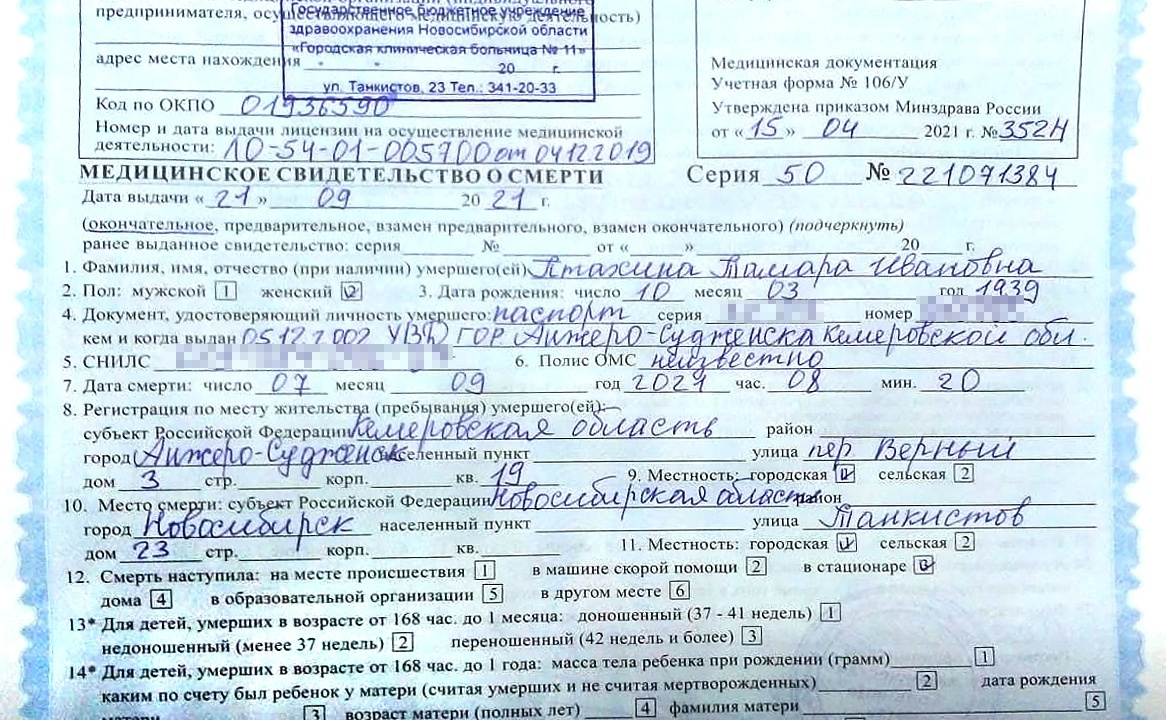 предпринимателя, осуществляющего медицинскую деятельность)
Государственное бюджетное учреждение
здравоохранения Новосибирской области
«Городская клиническая больница № 11»
адрес места нахождения
20 г.
ул. Танкистов, 23 Тел.: 341-20-33
Код по ОКПО 01936590
Номер и дата выдачи лицензии на осуществление медицинской
деятельности: ЛО-54-01-005700 от 04.12.2019
Медицинская документация
Учетная форма № 106/У
Утверждена приказом Минздрава России
от «15» 04 2021 г. № 352Н
МЕДИЦИНСКОЕ СВИДЕТЕЛЬСТВО О СМЕРТИ Серия 50 № 221071384
Дата выдачи «21» 09 20 21 г.
(окончательное, предварительное, взамен предварительного, взамен окончательного) (подчеркнуть)
ранее выданное свидетельство: серия № от « » 20 г.
1. Фамилия, имя, отчество (при наличии) умершего(ей) Птахина Тамара Ивановна
2. Пол: мужской 1 женский 2 3. Дата рождения: число 10 месяц 03 год 1939
4. Документ, удостоверяющий личность умершего: паспорт серия номер
кем и когда выдан 05.12.2002 УВД ГОР Анжеро-Судженска Кемеровской обл.
5. СНИЛС 6. Полис ОМС неизвестно
7. Дата смерти: число 07 месяц 09 год 2021 час. 08 мин. 20
8. Регистрация по месту жительства (пребывания) умершего(ей):
субъект Российской Федерации Кемеровская область район
город Анжеро-Судженск населенный пункт улица пер Верный
дом 3 стр. корп. кв. 19 9. Местность: городская 1 сельская 2
10. Место смерти: субъект Российской Федерации Новосибирская область район
город Новосибирск населенный пункт улица Танкистов
дом 23 стр. корп. кв. 11. Местность: городская 1 сельская 2
12. Смерть наступила: на месте происшествия 1 в машине скорой помощи 2 в стационаре 3
дома 4 в образовательной организации 5 в другом месте 6
13* Для детей, умерших в возрасте от 168 час. до 1 месяца: доношенный (37 - 41 недель) 1
недоношенный (менее 37 недель) 2 переношенный (42 недель и более) 3
14* Для детей, умерших в возрасте от 168 час. до 1 года: масса тела ребенка при рождении (грамм) 1
каким по счету был ребенок у матери (считая умерших и не считая мертворожденных) 2 дата рождения
матери 3 возраст матери (полных лет) 4 фамилия матери 5